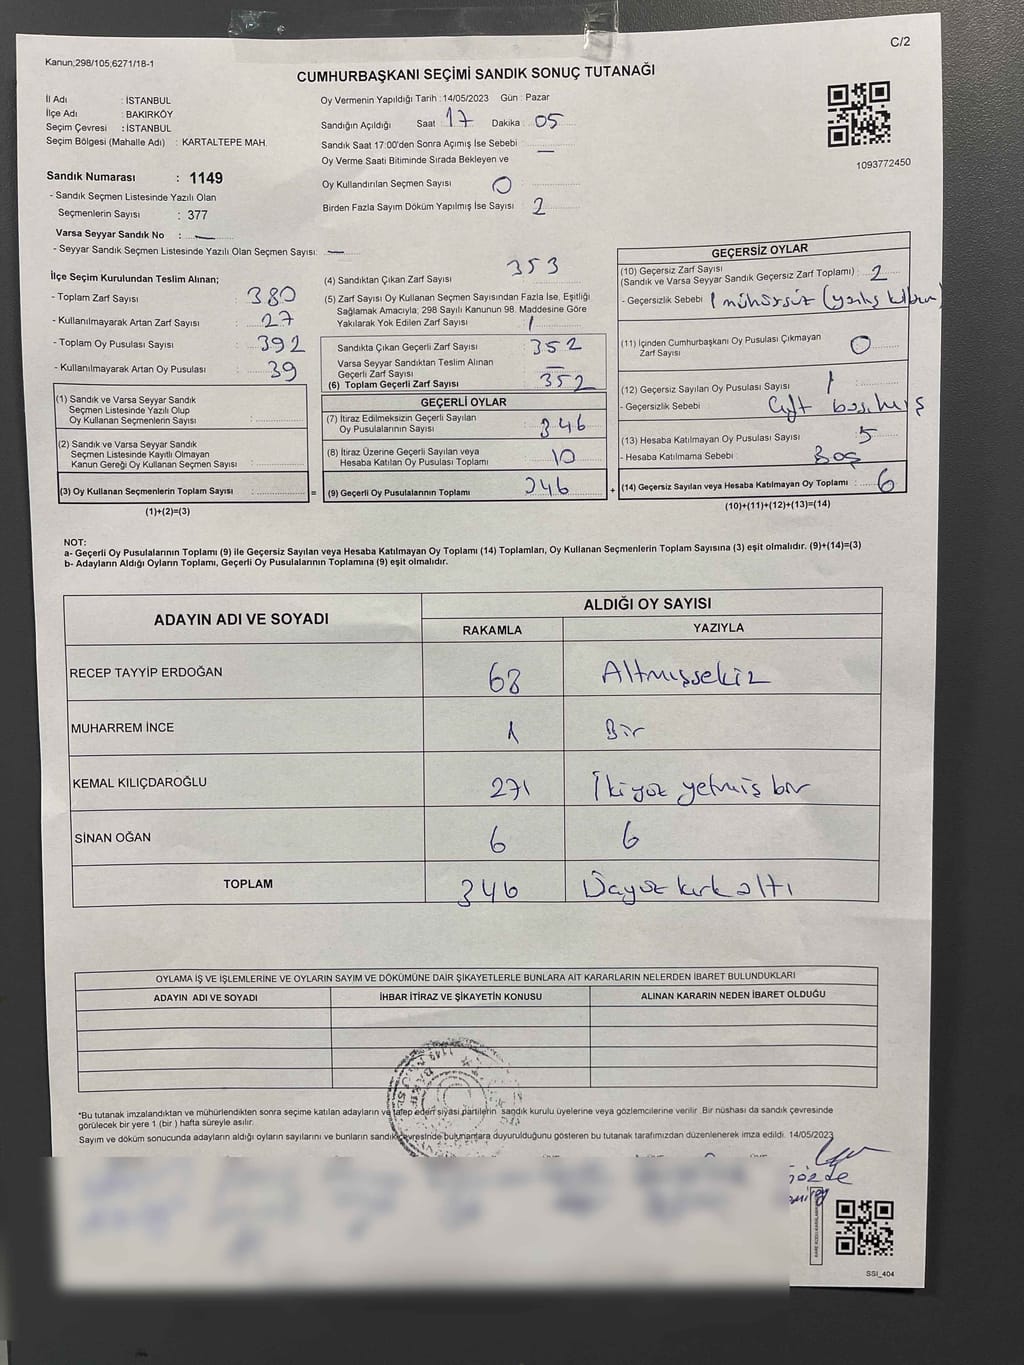 Kanun;298/105,6271/18-1
C/2
CUMHURBAŞKANI SEÇİMİ SANDIK SONUÇ TUTANAĞI
İl Adı : İSTANBUL
İlçe Adı : BAKIRKÖY
Seçim Çevresi : İSTANBUL
Seçim Bölgesi (Mahalle Adı) : KARTALTEPE MAH.
Sandık Numarası : 1149
- Sandık Seçmen Listesinde Yazılı Olan
Seçmenlerin Sayısı : 377
Varsa Seyyar Sandık No : —
- Seyyar Sandık Seçmen Listesinde Yazılı Olan Seçmen Sayısı: —
Oy Vermenin Yapıldığı Tarih :14/05/2023 Gün : Pazar
Sandığın Açıldığı Saat 17 Dakika : 05
Sandık Saat 17:00'den Sonra Açımış İse Sebebi —
Oy Verme Saati Bitiminde Sırada Bekleyen ve
Oy Kullandırılan Seçmen Sayısı 0
Birden Fazla Sayım Döküm Yapılmış İse Sayısı 2
1093772450
İlçe Seçim Kurulundan Teslim Alınan;
- Toplam Zarf Sayısı : 380
- Kullanılmayarak Artan Zarf Sayısı : 27
- Toplam Oy Pusulası Sayısı : 392
- Kullanılmayarak Artan Oy Pusulası : 39
(1) Sandık ve Varsa Seyyar Sandık
Seçmen Listesinde Yazılı Olup
Oy Kullanan Seçmenlerin Sayısı :
(2) Sandık ve Varsa Seyyar Sandık
Seçmen Listesinde Kayıtlı Olmayan
Kanun Gereği Oy Kullanan Seçmen Sayısı :
(3) Oy Kullanan Seçmenlerin Toplam Sayısı :
(1)+(2)=(3)
(4) Sandıktan Çıkan Zarf Sayısı : 353
(5) Zarf Sayısı Oy Kullanan Seçmen Sayısından Fazla İse, Eşitliği
Sağlamak Amacıyla; 298 Sayılı Kanunun 98. Maddesine Göre
Yakılarak Yok Edilen Zarf Sayısı : 1
Sandıkta Çıkan Geçerli Zarf Sayısı : 352
Varsa Seyyar Sandıktan Teslim Alınan
Geçerli Zarf Sayısı : —
(6) Toplam Geçerli Zarf Sayısı : 352
GEÇERLİ OYLAR
(7) İtiraz Edilmeksizin Geçerli Sayılan
Oy Pusulalarının Sayısı : 346
(8) İtiraz Üzerine Geçerli Sayılan veya
Hesaba Katılan Oy Pusulası Toplamı : 10
= (9) Geçerli Oy Pusulalarının Toplamı : 346 +
GEÇERSİZ OYLAR
(10) Geçersiz Zarf Sayısı
(Sandık ve Varsa Seyyar Sandık Geçersiz Zarf Toplamı) : 2
- Geçersizlik Sebebi : 1 mühürsüz
(11) İçinden Cumhurbaşkanı Oy Pusulası Çıkmayan
Zarf Sayısı : 0
(12) Geçersiz Sayılan Oy Pusulası Sayısı : 1
- Geçersizlik Sebebi : Çift basılmış
(13) Hesaba Katılmayan Oy Pusulası Sayısı : 5
- Hesaba Katılmama Sebebi : Boş
(14) Geçersiz Sayılan veya Hesaba Katılmayan Oy Toplamı : 6
(10)+(11)+(12)+(13)=(14)
NOT:
a- Geçerli Oy Pusulalarının Toplamı (9) ile Geçersiz Sayılan veya Hesaba Katılmayan Oy Toplamı (14) Toplamları, Oy Kullanan Seçmenlerin Toplam Sayısına (3) eşit olmalıdır. (9)+(14)=(3)
b- Adayların Aldığı Oyların Toplamı, Geçerli Oy Pusulalarının Toplamına (9) eşit olmalıdır.
ADAYIN ADI VE SOYADI ALDIĞI OY SAYISI
RAKAMLA YAZIYLA
RECEP TAYYİP ERDOĞAN 68 Altmışsekiz
MUHARREM İNCE 1 Bir
KEMAL KILIÇDAROĞLU 271 İkiyüz yetmiş bir
SİNAN OĞAN 6 6
TOPLAM 346 Üçyüz kırk altı
OYLAMA İŞ VE İŞLEMLERİNE VE OYLARIN SAYIM VE DÖKÜMÜNE DAİR ŞİKAYETLERLE BUNLARA AİT KARARLARIN NELERDEN İBARET BULUNDUKLARI
ADAYIN ADI VE SOYADI İHBAR İTİRAZ VE ŞİKAYETİN KONUSU ALINAN KARARIN NEDEN İBARET OLDUĞU
*Bu tutanak imzalandıktan ve mühürlendikten sonra seçime katılan adayların ve talep eden siyasi partilerin sandık kurulu üyelerine veya gözlemcilerine verilir. Bir nüshası da sandık çevresinde
görülecek bir yere 1 (bir ) hafta süreyle asılır.
Sayım ve döküm sonucunda adayların aldığı oyların sayılarını ve bunların sandık çevresinde bulunanlara duyurulduğunu gösteren bu tutanak tarafımızdan düzenlenerek imza edildi. 14/05/2023
SSI_404